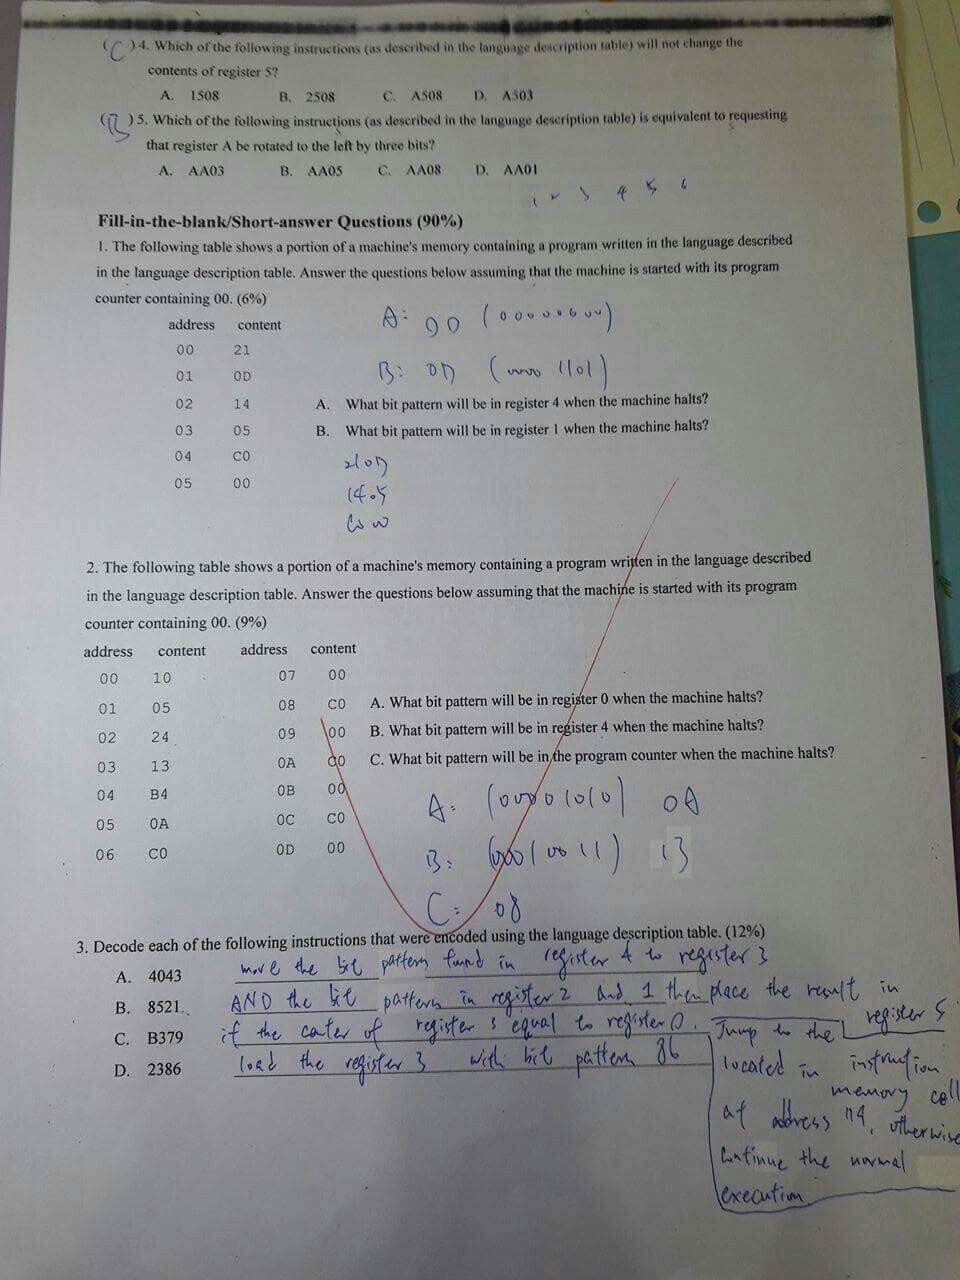 (C) 4. Which of the following instructions (as described in the language description table) will not change the
contents of register 5?
A. 1508 B. 2508 C. A508 D. A503
(B) 5. Which of the following instructions (as described in the language description table) is equivalent to requesting
that register A be rotated to the left by three bits?
A. AA03 B. AA05 C. AA08 D. AA01
1 2 3 4 5 6
Fill-in-the-blank/Short-answer Questions (90%)
1. The following table shows a portion of a machine's memory containing a program written in the language described
in the language description table. Answer the questions below assuming that the machine is started with its program
counter containing 00. (6%)
address content
00 21
01 0D
02 14
03 05
04 C0
05 00
A: 00 (00000000)
B: 0D (0000 1101)
A. What bit pattern will be in register 4 when the machine halts?
B. What bit pattern will be in register 1 when the machine halts?
210D
1405
C000
2. The following table shows a portion of a machine's memory containing a program written in the language described
in the language description table. Answer the questions below assuming that the machine is started with its program
counter containing 00. (9%)
address content address content
00 10 07 00
01 05 08 C0
02 24 09 00
03 13 0A C0
04 B4 0B 00
05 0A 0C C0
06 C0 0D 00
A. What bit pattern will be in register 0 when the machine halts?
B. What bit pattern will be in register 4 when the machine halts?
C. What bit pattern will be in the program counter when the machine halts?
A: (00001010) 0A
B: (00010011) 13
C: 08
3. Decode each of the following instructions that were encoded using the language description table. (12%)
A. 4043 move the bit pattern found in register 4 to register 3
B. 8521 AND the bit pattern in register 2 and 1 then place the result in
register 5
C. B379 if the conter of register 3 equal to register 0. Jump to the
located in instruction
memory cell
at address 79, otherwise
continue the normal
execution
D. 2386 load the register 3 with bit pattern 86